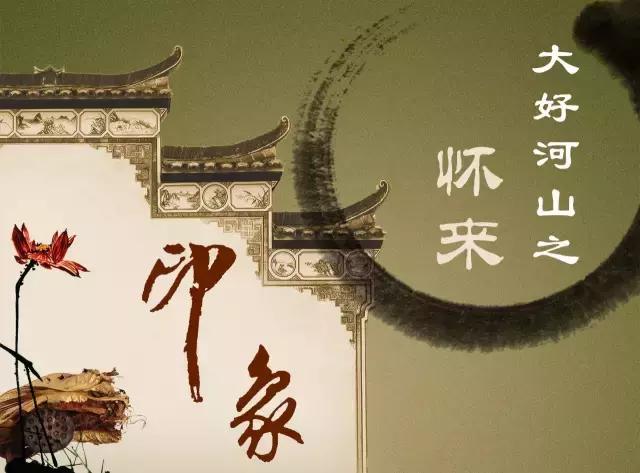 大好河山之
怀来
印象